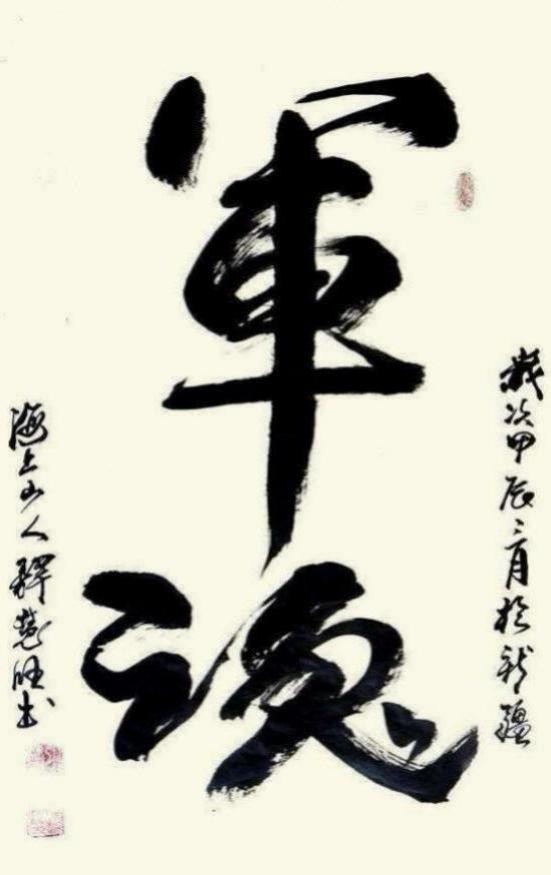 歲次甲辰月於新疆
軍魂
海上山人釋慧旺书